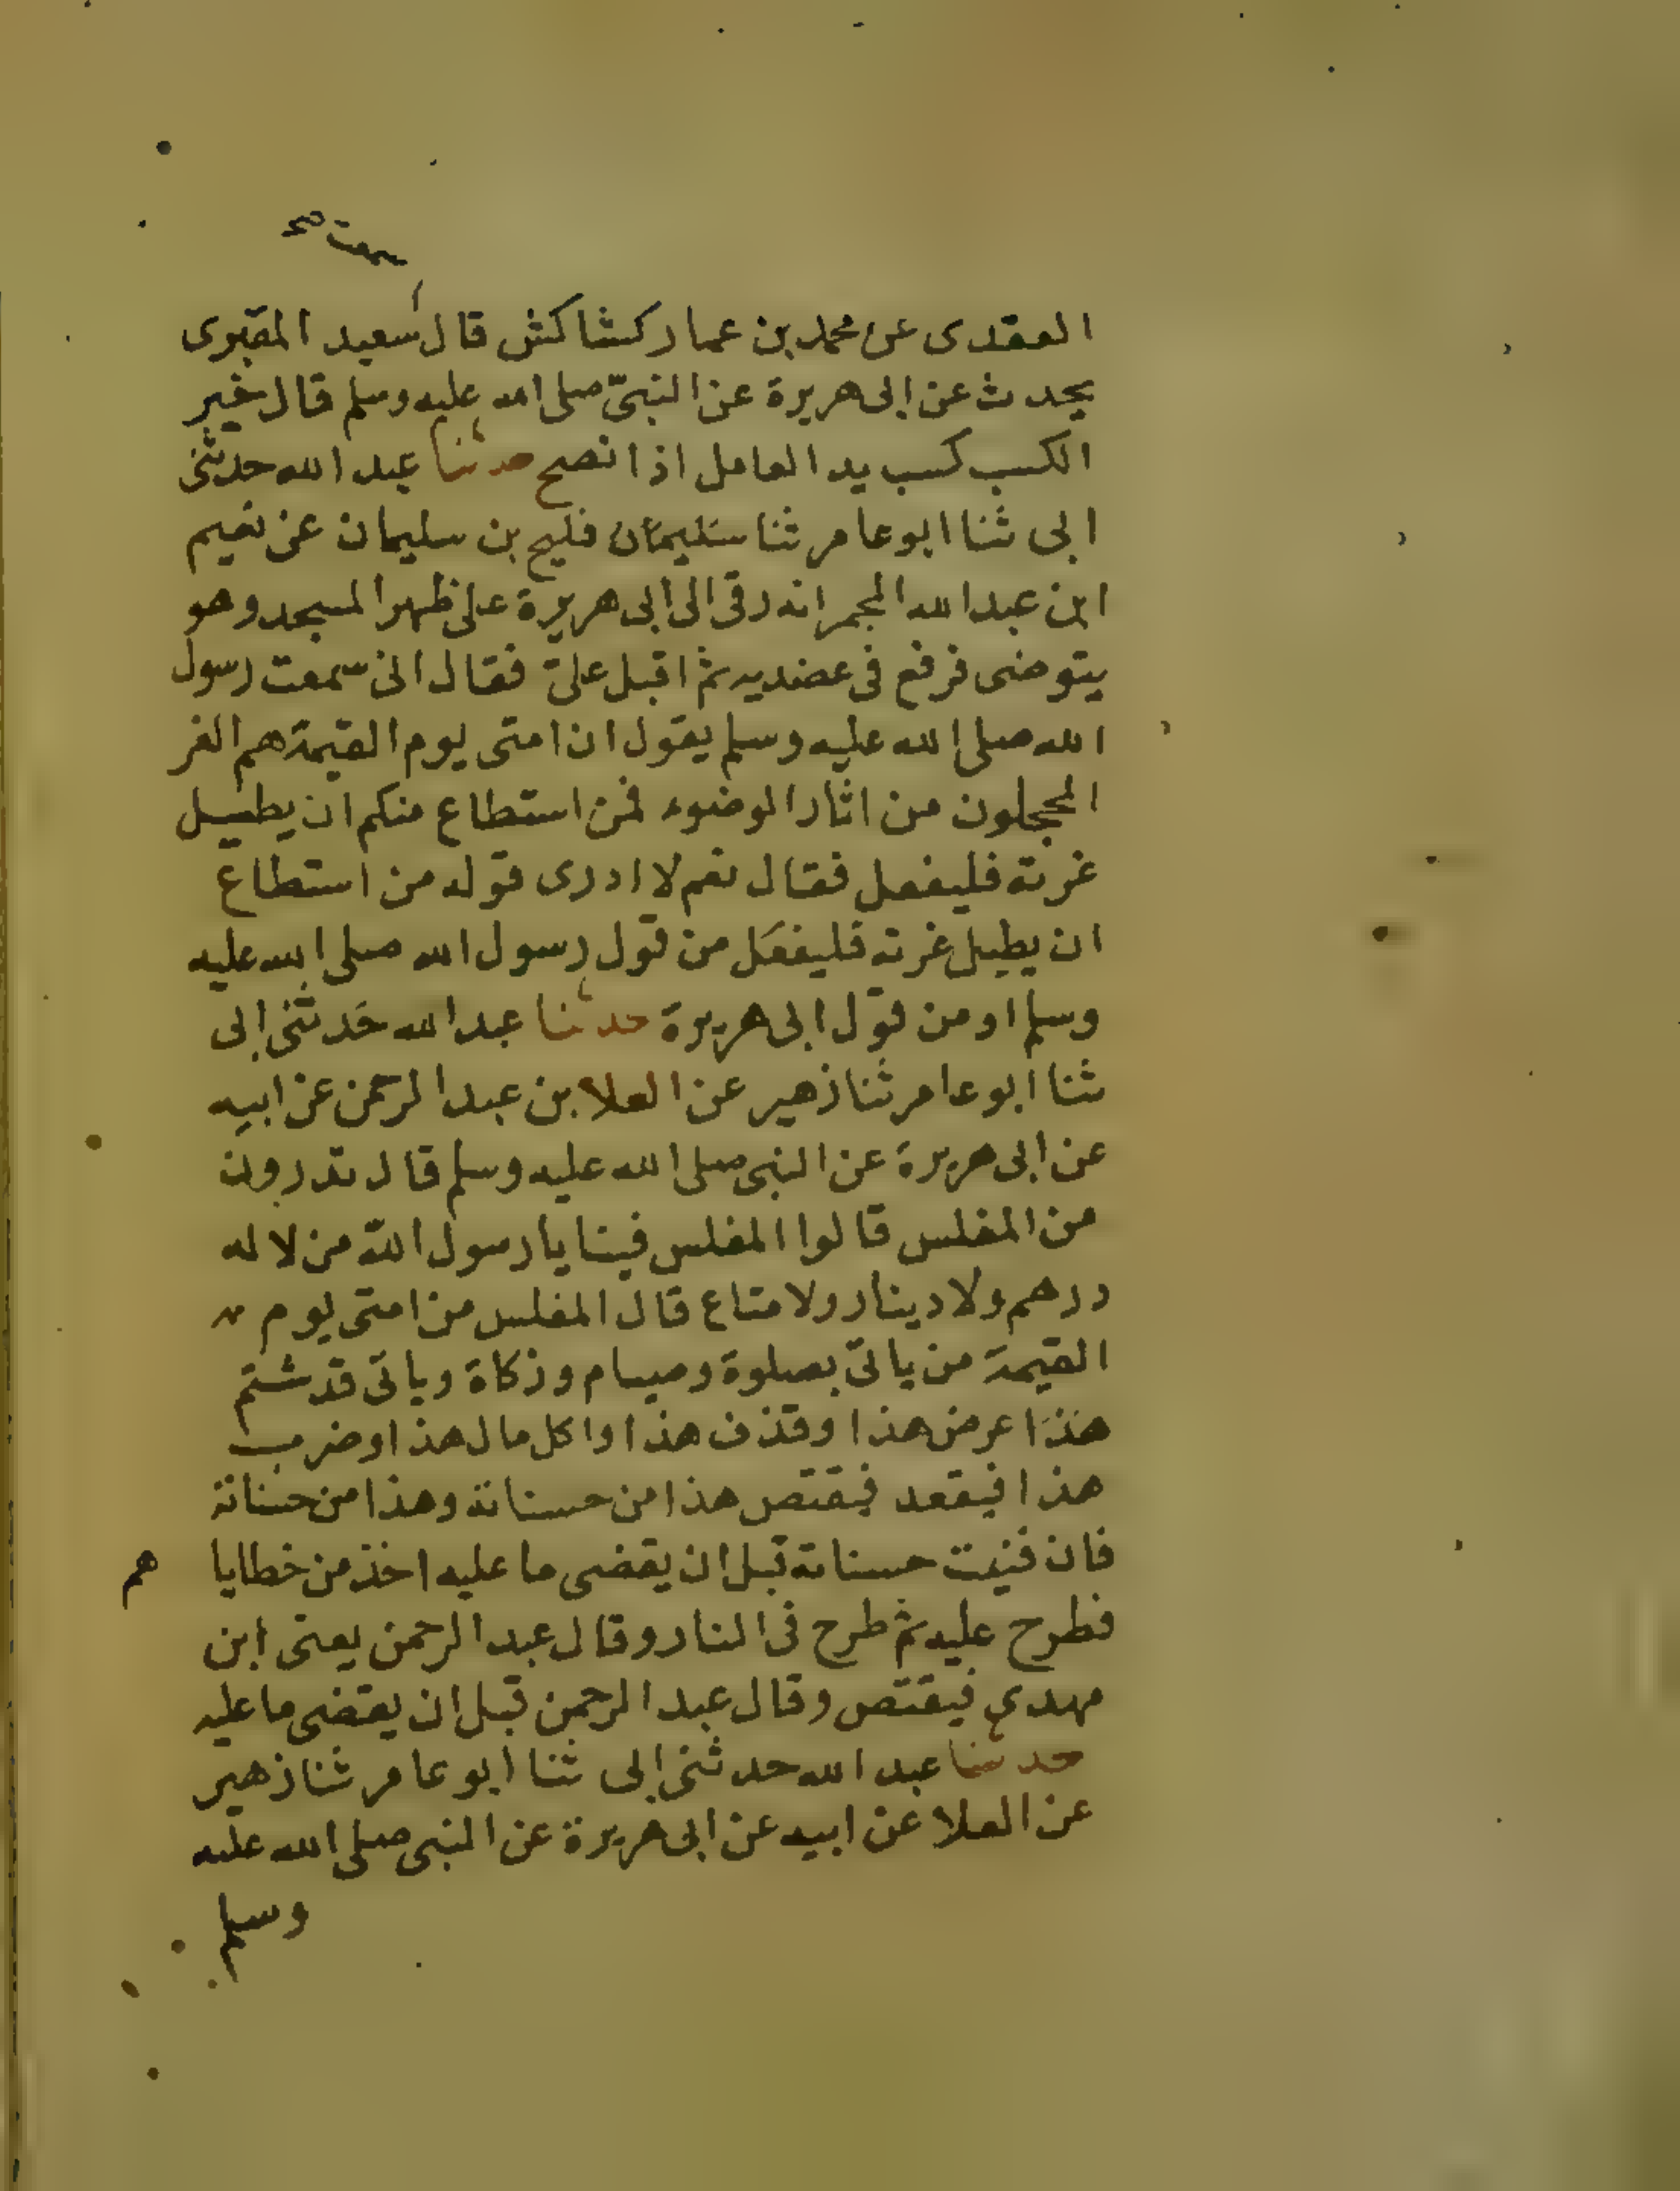 سمعت صح
العقدى عن محمد بن عمار كشاكش قال سعيد المقبرى
يحدث عن ابى هريرة عن النبىّ صلى الله عليه وسلم قال خير
الكسب كسب يد العامل اذا نصح حدثنا عبد الله حدثنى
ابى ثنا ابو عامر ثنا سليمان فليح بن سليمان عن نعيم
ابن عبد الله المجمر انه رقى الى ابى هريرة على ظهر المسجد وهو
يتوضى فرفع فى عضديه ثم اقبل علىّ فقال انى سمعت رسول
الله صلى الله عليه وسلم يقول ان امتى يوم القيمة هم الغر
المحجلون من اثار الوضوء فمن استطاع منكم ان يطيل
غرته فليفعل فقال نعيم لا ادرى قوله من استطاع
ان يطيل غرته فليفعل من قول رسول الله صلى الله عليه
وسلم او من قول ابى هريرة حدثنا عبد الله حدثنى ابى
ثنا ابو عامر ثنا زهير عن العلا بن عبد الرحمن عن ابيه
عن ابى هريرة عن النبى صلى الله عليه وسلم قال تدرون
من المفلس قالوا المفلس فينا يا رسول الله من لا له
درهم ولا دينار ولا متاع قال المفلس من امتى يوم
القيمة من ياتى بصلوة وصيام وزكاة وياتى قد شتم
هذا عرض هذا وقذف هذا واكل مال هذا وضرب
هذا فيقعد فيقتص هذا من حسناته وهذا من حسناته
فان فنيت حسناته قبل ان يقضى ما عليه اخذ من خطايا هم
فطرح عليه ثم طرح فى النار وقال عبد الرحمن يعنى ابن
مهدى فيقتص وقال عبد الرحمن قبل ان يقضى ما عليه
حدثنا عبد الله حدثنى ابى ثنا ابو عامر ثنا زهير
عن العلا عن ابيه عن ابى هريرة عن النبى صلى الله عليه
وسلم